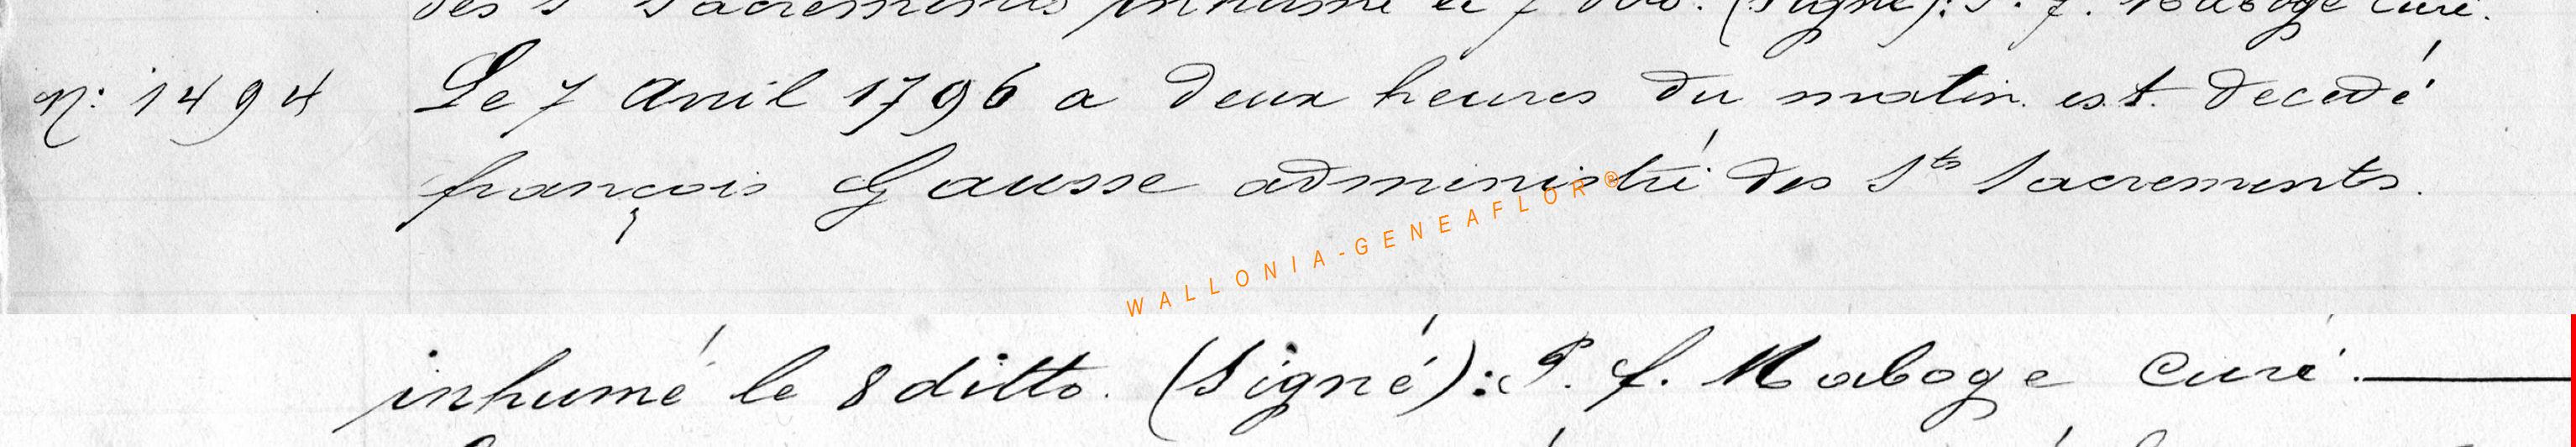 des Sts Sacrements inhumé le 7 ditto. (Signé): P. f. Naboge Curé.
n: 1494 Le 7 Avril 1796 a deux heures du matin est decedé
françois Gausse administré des Sts Sacrements.
WALLONIA-GENEAFLOR®
inhumé le 8 ditto. (Signé): P. f. Naboge Curé.